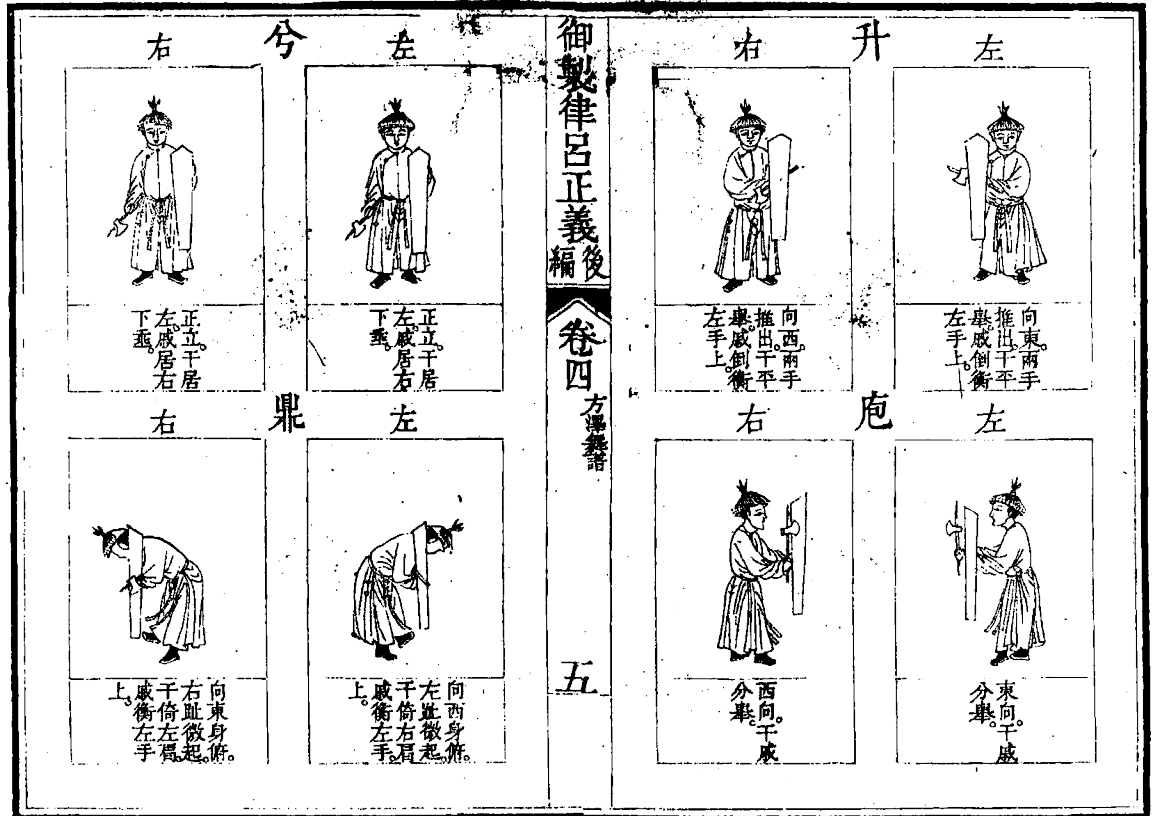 升
左
向東。兩手
推出。干平
舉。戚倒衡
左手上。
右
向西。兩手
推出。干平
舉。戚倒衡
左手上。
庖
左
東向。干戚
分舉。
右
西向。干戚
分舉。
御製律呂正義後編
卷四
方澤舞譜
五
兮
左
正立。干居
左。戚居右
下垂。
右
正立。干居
左。戚居右
下垂。
鼎
左
向西身俯。
左趾微起。
干倚右肩。
戚衡左手
上。
右
向東身俯。
右趾微起。
干倚左肩。
戚衡左手
上。